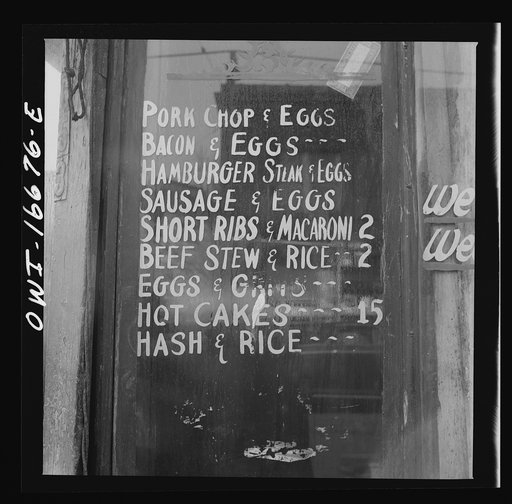 PORK CHOP & EGGS
BACON & EGGS---
HAMBURGER STEAK & EGGS
SAUSAGE & EGGS
SHORT RIBS & MACARONI 2
BEEF STEW & RICE--2
EGGS & GRITS---
HOT CAKES---15
HASH & RICE---
We
We
OWI-16676-E